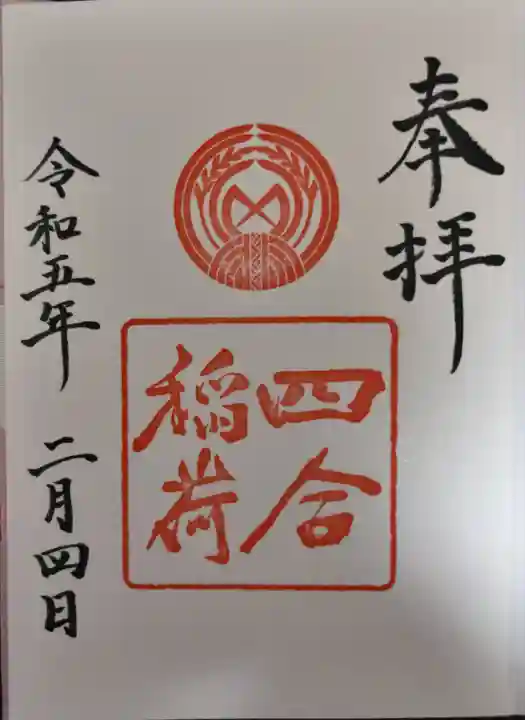 奉拝
四合
稲荷
令和五年 二月四日